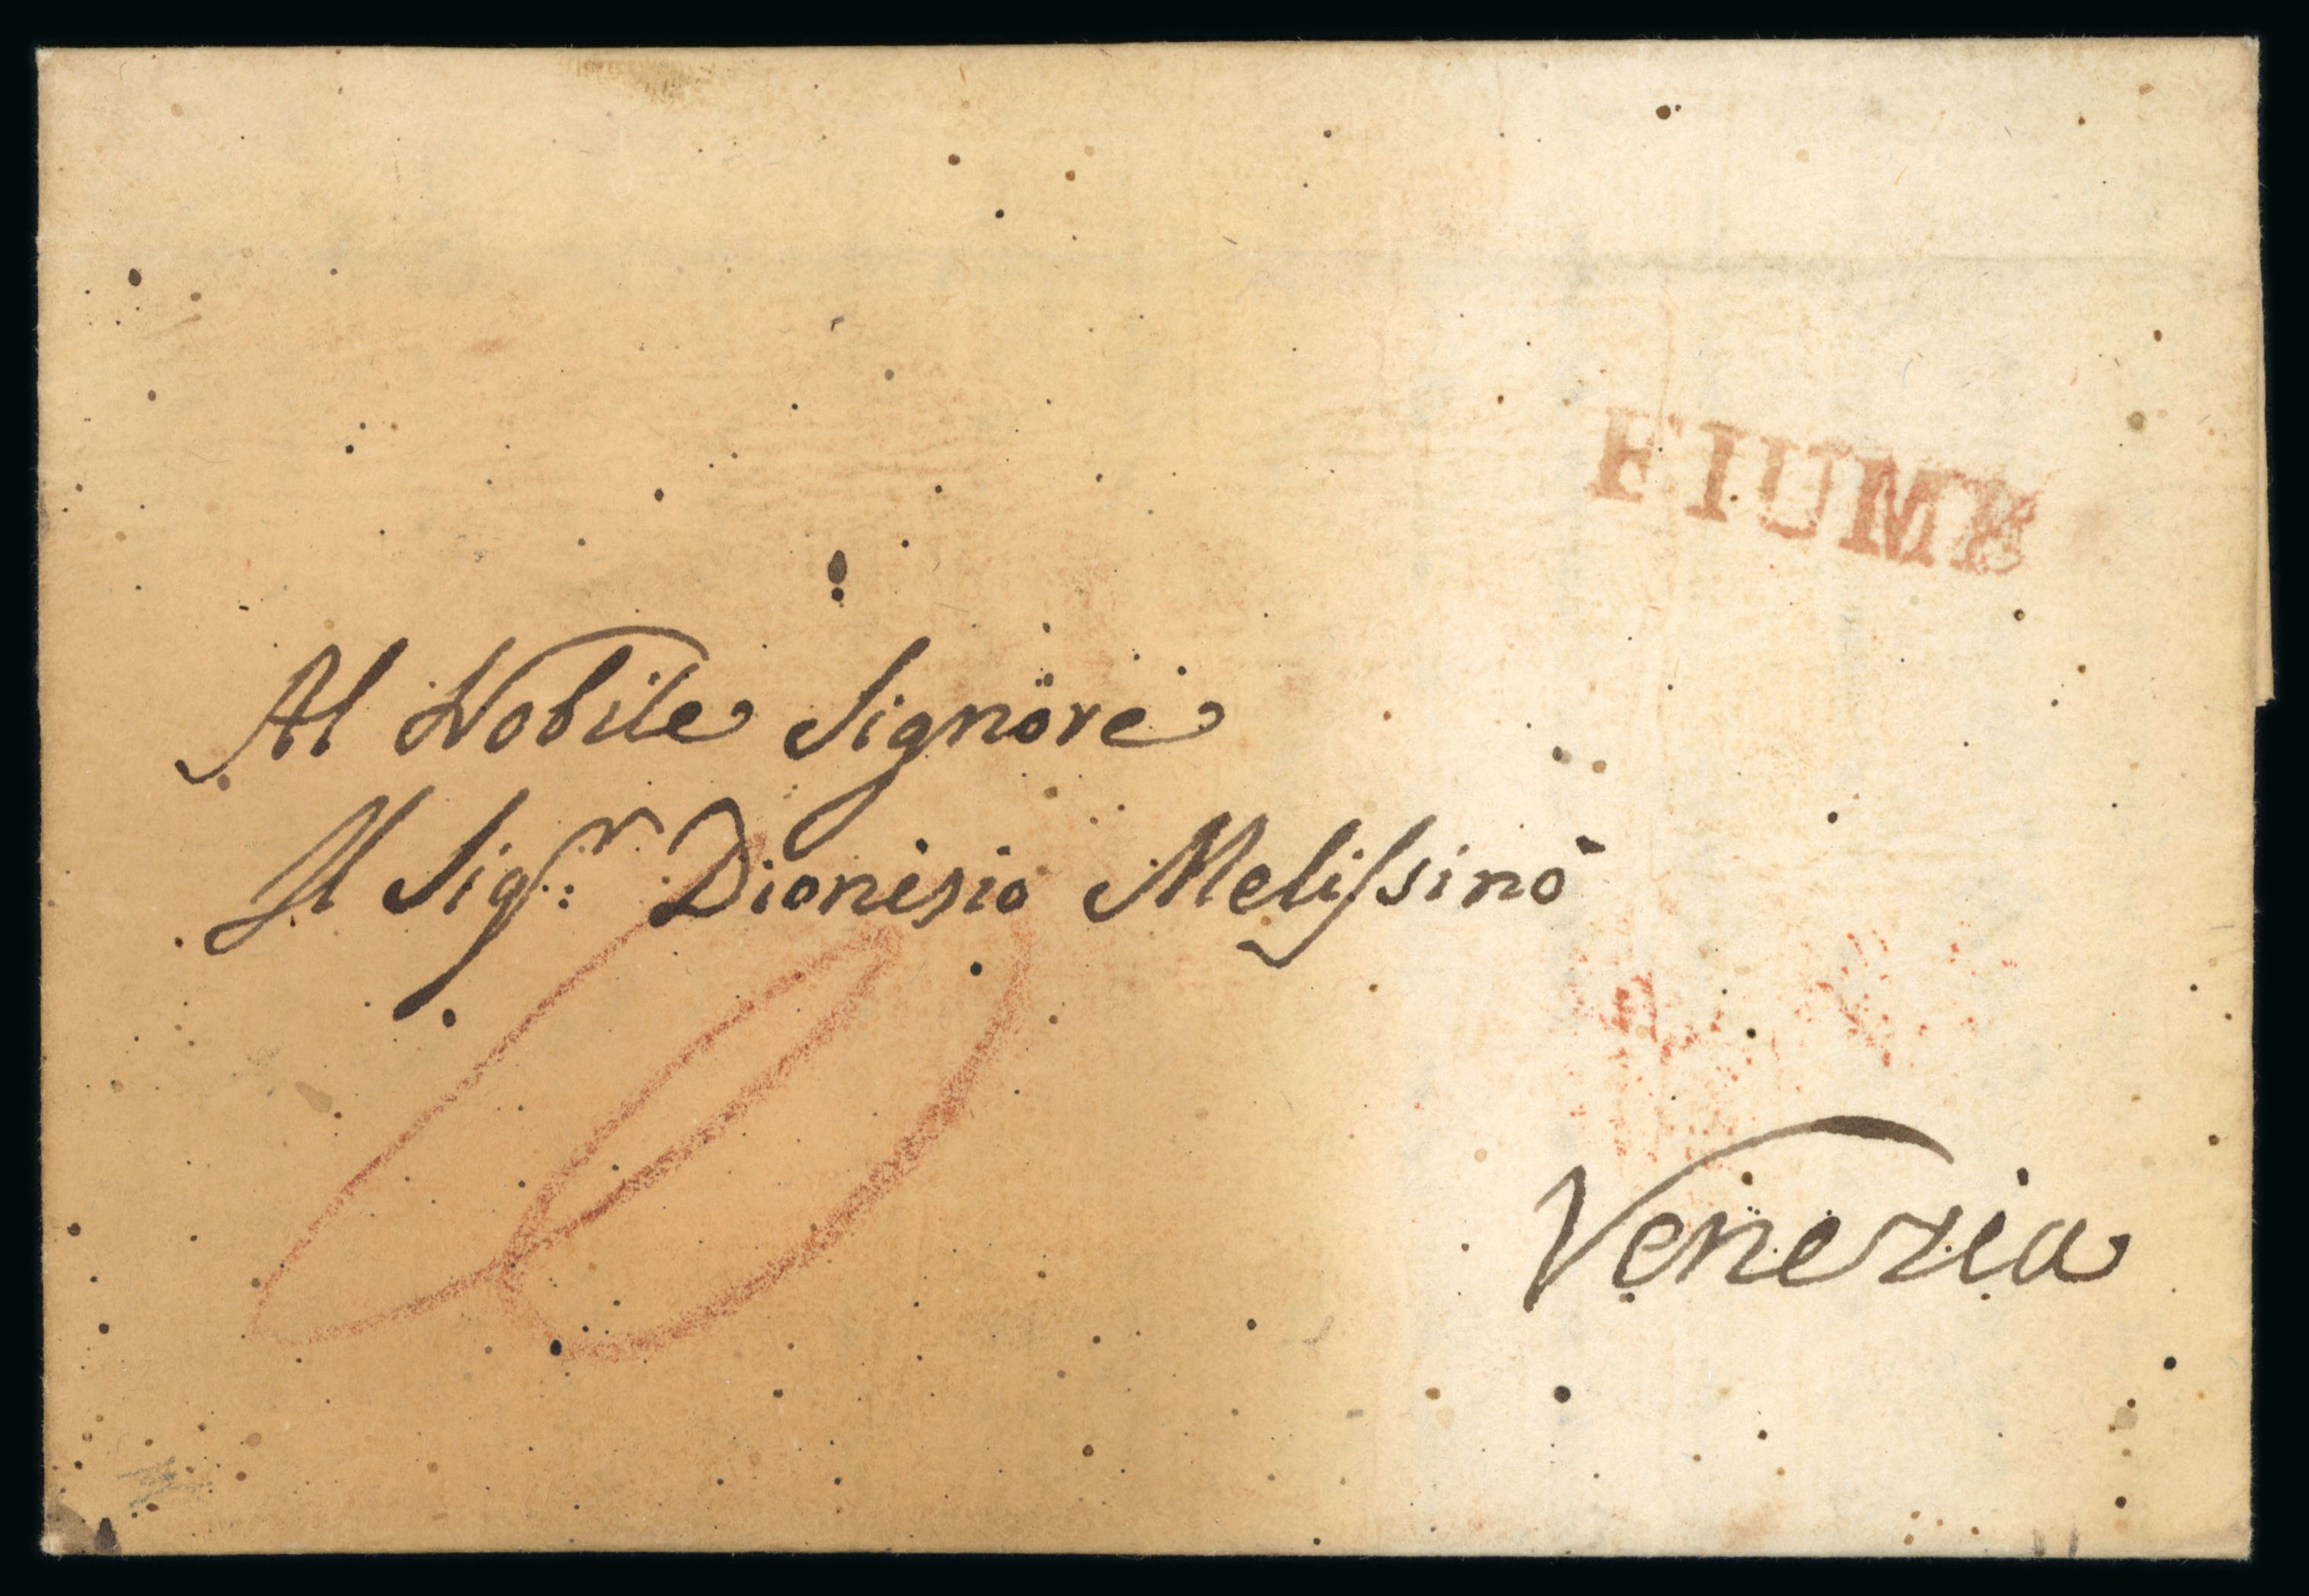 FIUME
Al Nobile Signore
Il Sigr: Dionisio Melissinò
Venezia